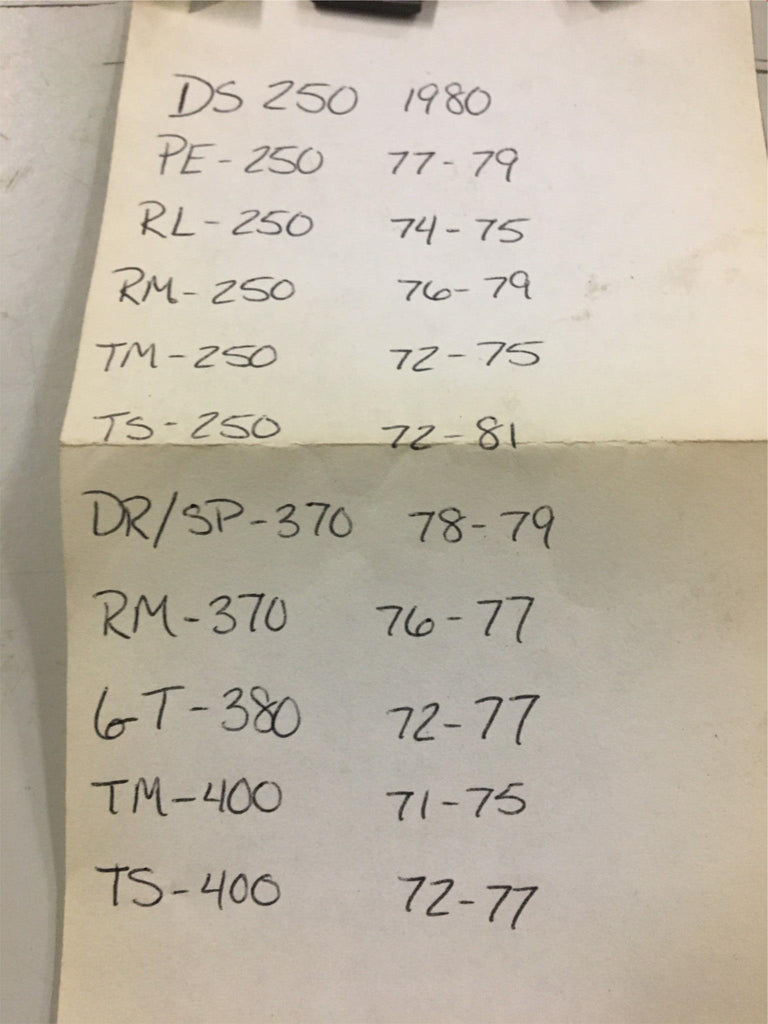 DS 250 1980
PE-250 77-79
RL-250 74-75
RM-250 76-79
TM-250 72-75
TS-250 72-81
DR/SP-370 78-79
RM-370 76-77
GT-380 72-77
TM-400 71-75
TS-400 72-77